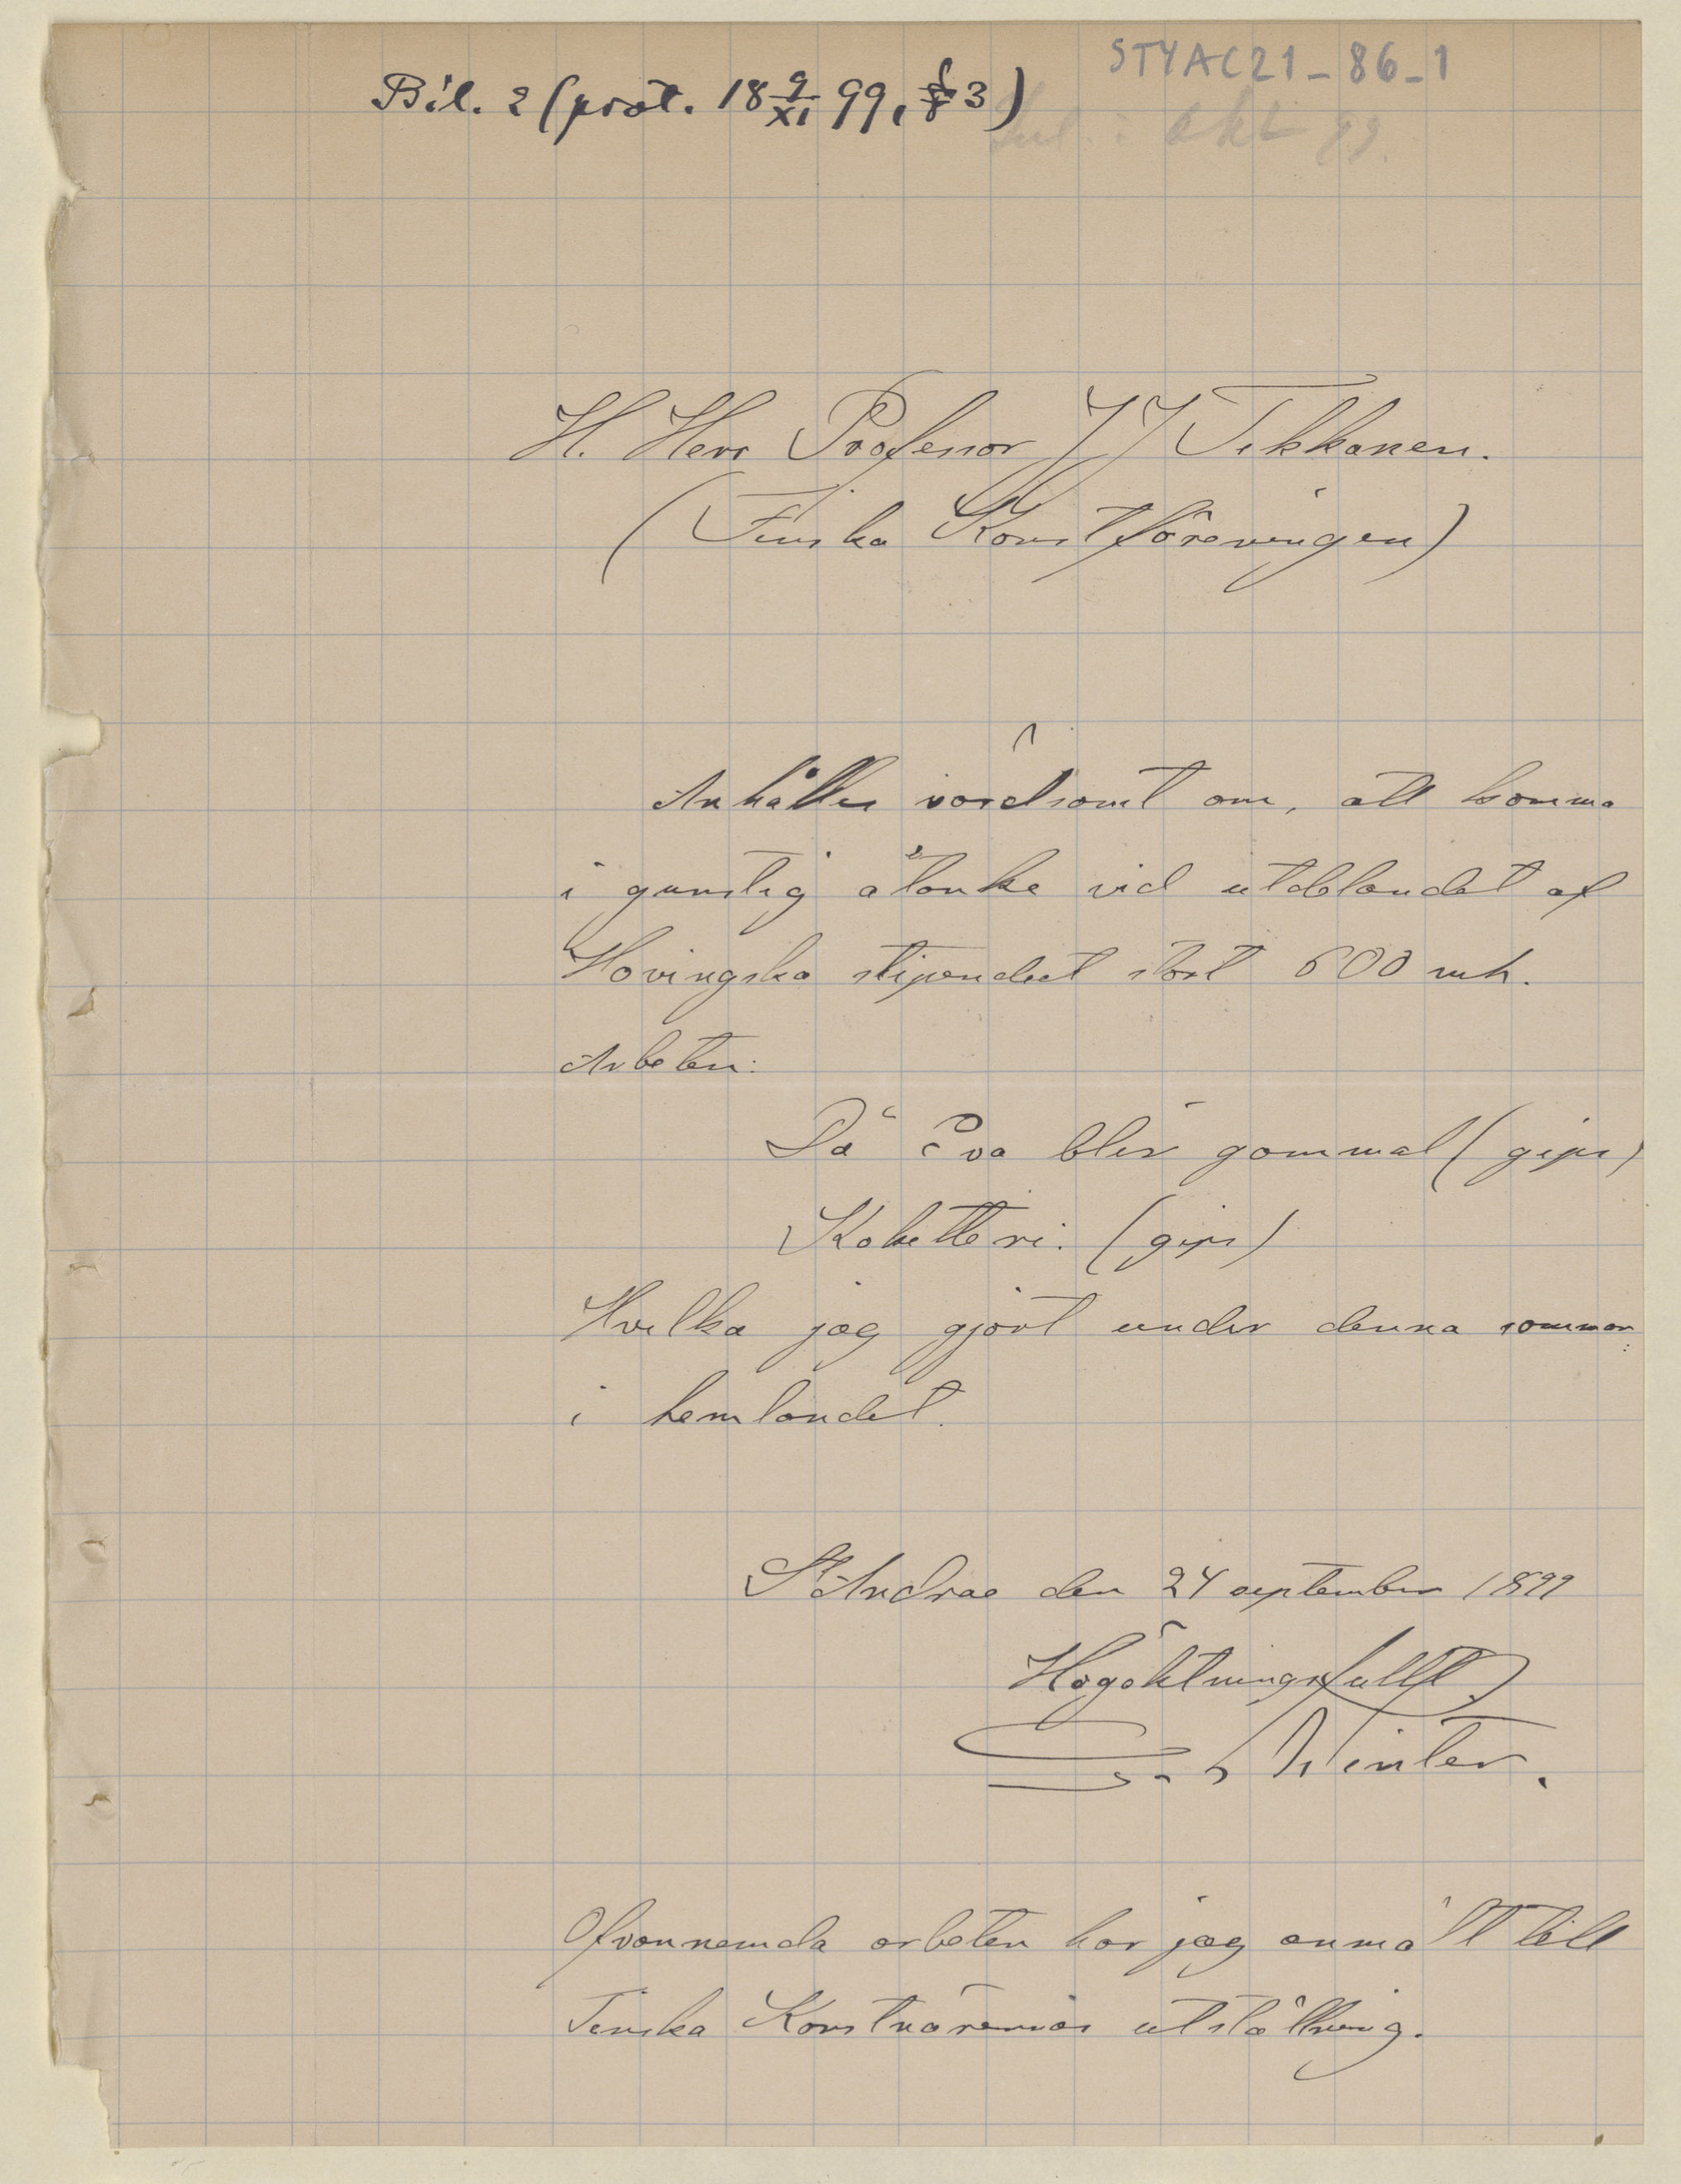 STYAC21_86_1
Bil. 2 (prot. 18 9/XI 99, § 3)
okt 99.
H. Herr Professor J J Tikkanen.
(Finska Konstföreningen)
Anhålles vördsamt om, att komma
i gunstig åtanke vid utdelandet af
Hovingska stipendiet stort 600 mk.
Arbeten:
Då Eva blev gammal (gips)
Koketteri. (gips)
Hvilka jag gjort under denna sommar
i hemlandet.
St Andrae den 24 september 1899
Högaktningsfullt.
E. Winter.
Ofvannemda arbeten har jag anmält till
Finska Konstnärernas utställning.